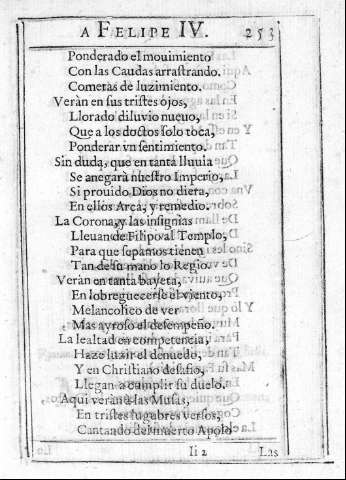 A FELIPE IV. 253
Ponderado el mouimiento
Con las Caudas arrastrando.
Cometas de luzimiento.
Veràn en sus tristes ojos,
Llorado diluvio nueuo,
Que a los doctos solo toca,
Ponderar vn sentimiento.
Sin duda, que en tanta lluuia
Se anegarà nuestro Imperio,
Si prouido Dios no diera,
En ellos Arca, y remedio.
La Corona, y las insignias
Lleuan de Filipo al Templo,
Para que sepamos tienen
Tan de su mano lo Regio.
Veràn en tanta bayeta,
En lobreguecerse el viento,
Melancolico de ver
Mas ayroso el desempeño.
La lealtad en competencia,
Haze luzir el denuedo,
Y en Christiano desafio,
Llegan a cumplir su duelo.
Aqui veràn a las Musas,
En tristes lugubres versos,
Cantando del muerto Apolo
Ii 2 Las